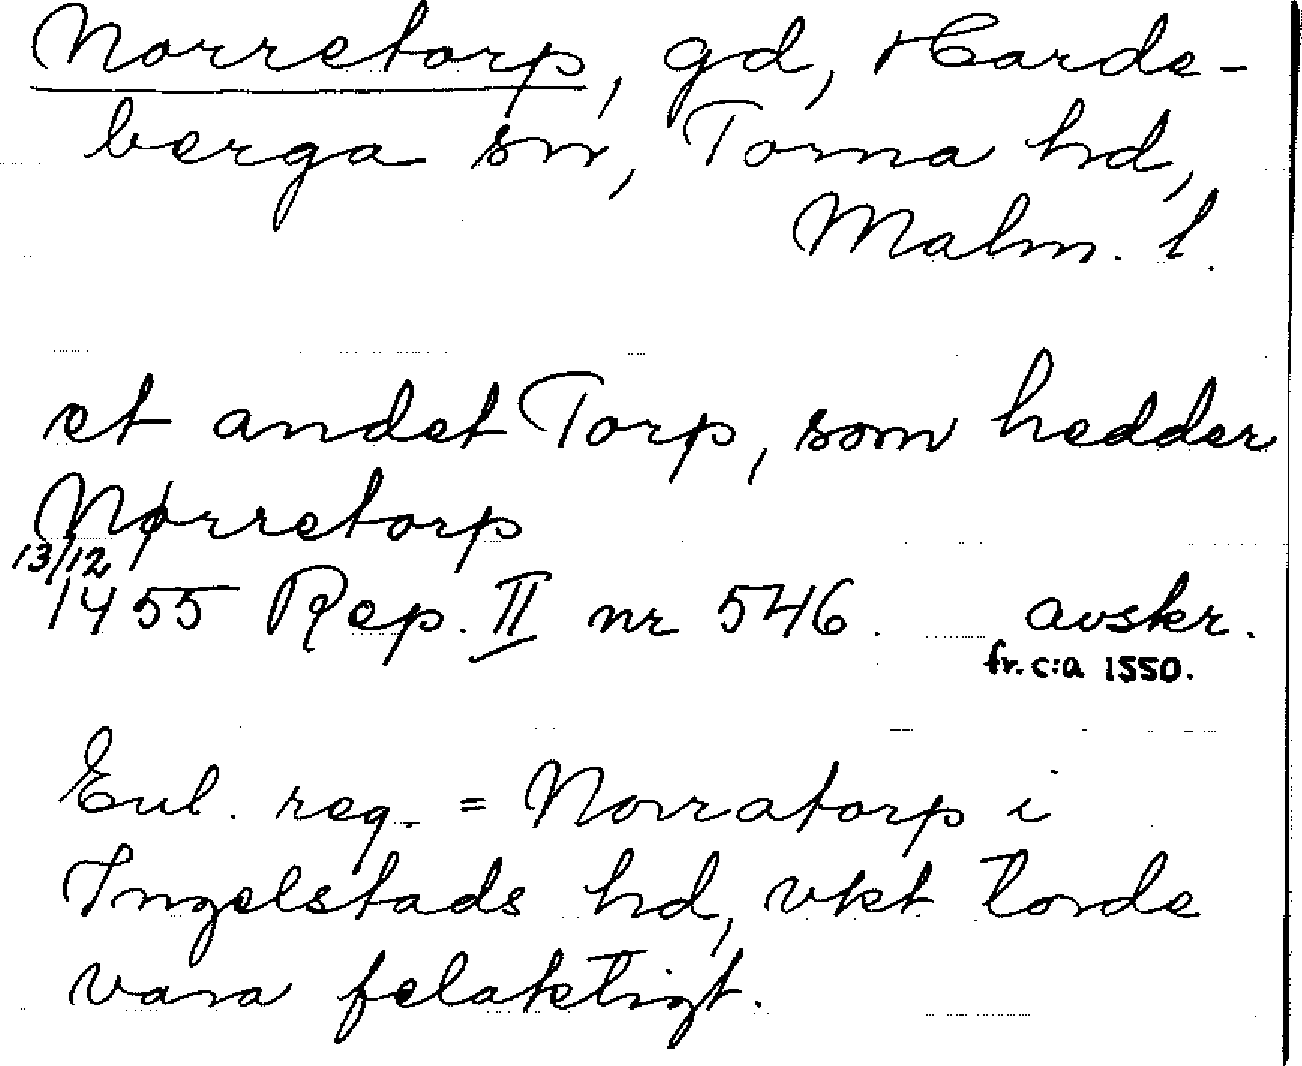 Norretorp, gd, Harde-
berga sn, Torna hd,
Malm. l.
et andet Torp, som hedder
Nørretorp
13/12
1455 Rep. II nr 546. avskr.
fr. c:a 1550.
Enl. reg. = Norratorp i
Ingelstads hd, vkt torde
vara felaktigt.